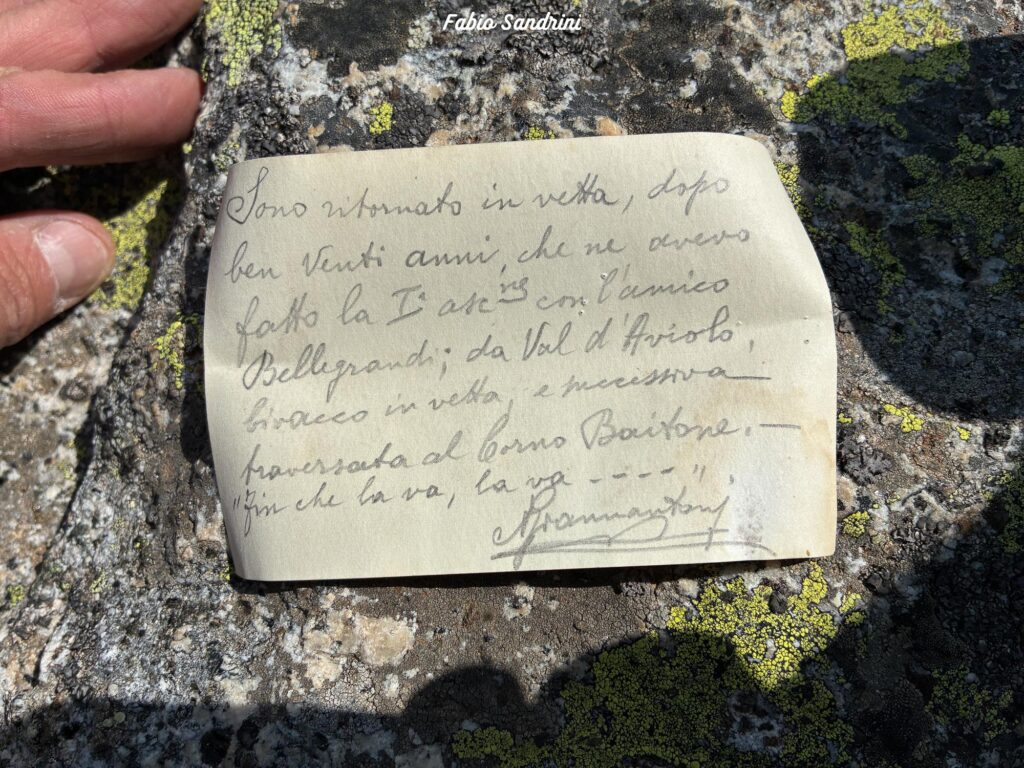 Fabio Sandrini
Sono ritornato in vetta, dopo
ben Venti anni, che ne avevo
fatto la Iª asc.ne con l'amico
Bellegrandi; da Val d'Aviolo,
bivacco in vetta, e successiva
traversata al Corno Baitone. —
"Fin che la va, la va - - - - ".